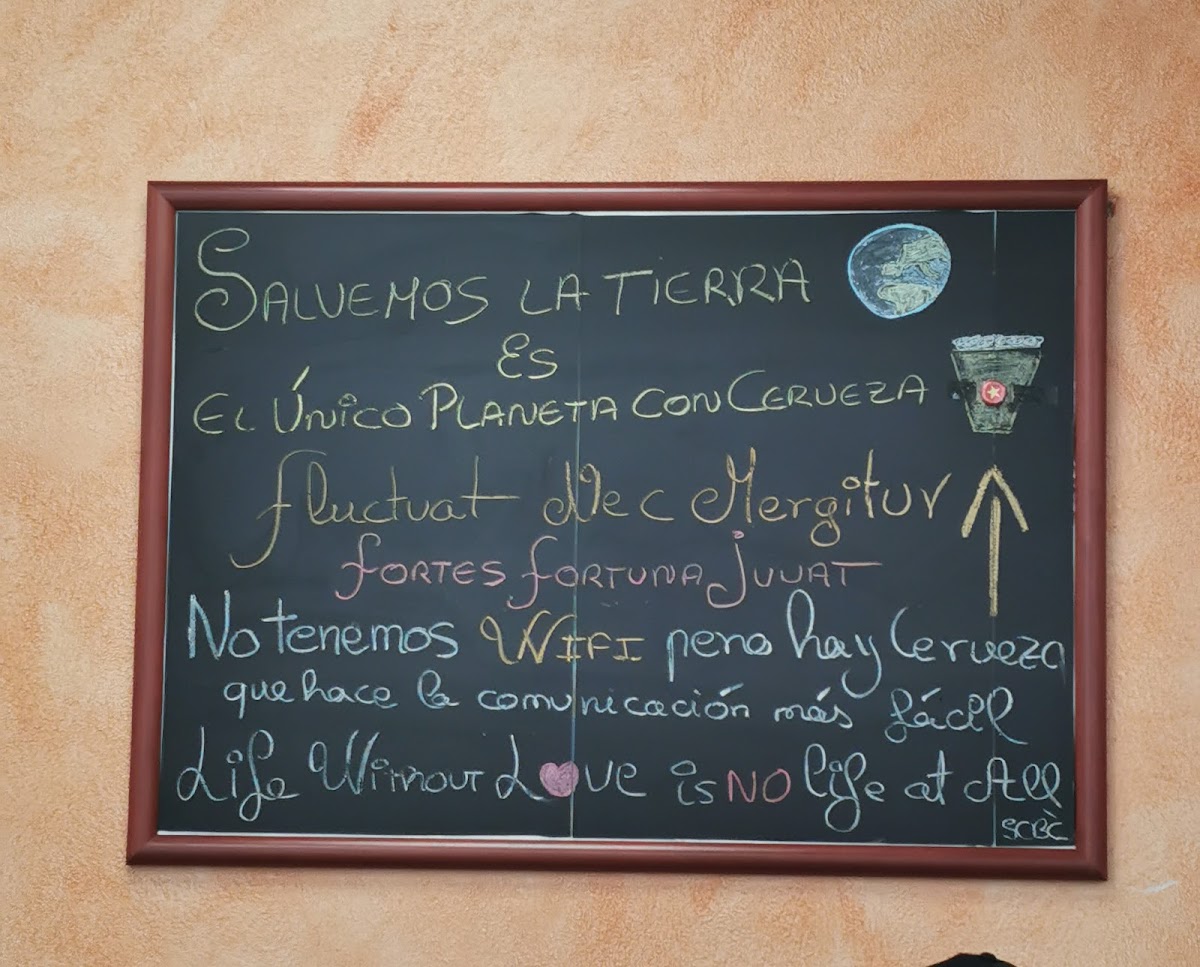 SALVEMOS LA TIERRA
ES
EL ÚNICO PLANETA CON CERVEZA
fluctuat Nec Mergitur
FORTES FORTUNA JUVAT
No tenemos WIFI pero hay Cerveza
que hace la comunicación más fácil
Life Without Love is NO life at All
SCBC